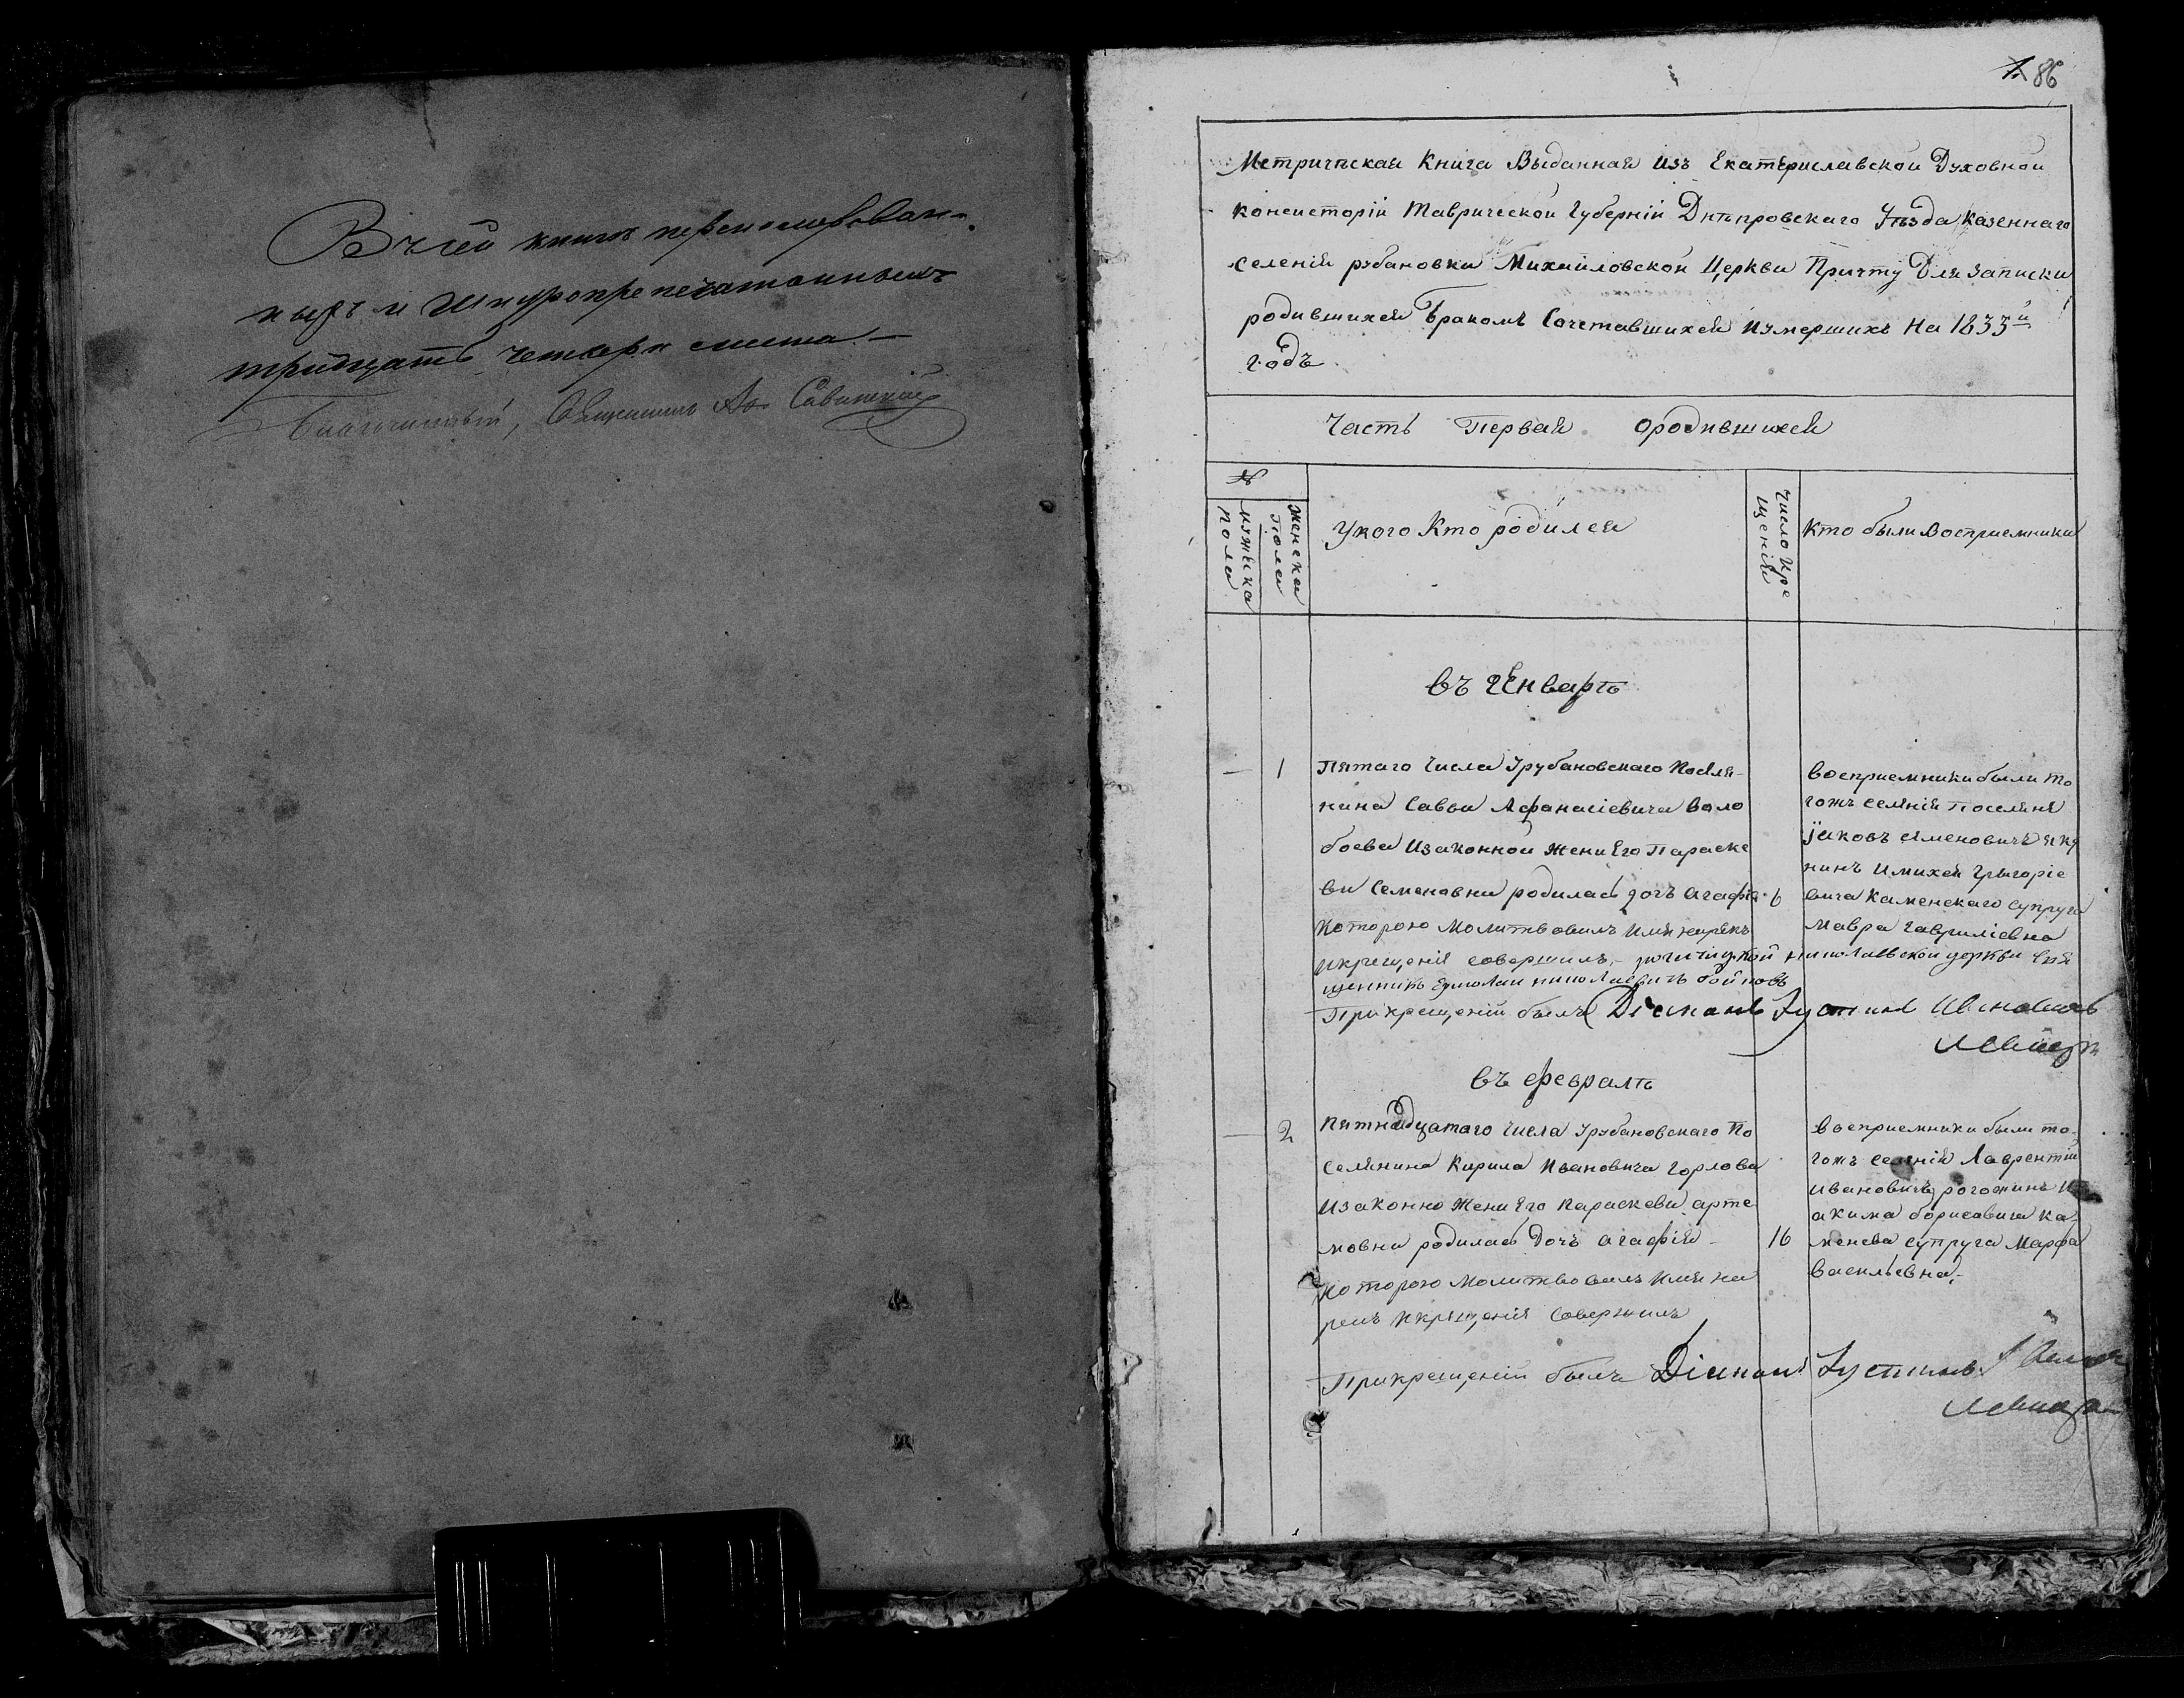 Въ сей книгѣ перенумерован-
ныхъ и Шнуропрепечатанныхъ
тридцать четыри листа.—
Благочинный, Священникъ Савинскій
1. 86
Метрическая Книга Выданная изъ Екатериславской Духовной
консисторіи Таврической Губерніи Днѣпровскаго Уѣзда Казеннаго
селенія рубановки Михайловской Церкви Причту Для записки
родившихся Бракомъ Сочетавшихся Иумершихъ На 1833й
годъ
Часть Первая ородившихся
№
мужска пола
женска пола
Укого Кто родился
Число Кре
щенія
Кто были Восприемники
въ Генварѣ
1
Пятаго Числа Урубановскаго Посля-
нина Савы Афанасіевича Воло
боева Изаконной жени Его Параске
ви Семеновни родилась дочъ агафія
6
Которою Молитвовалъ Имя нарекъ
икрещенія совершилъ,- николаевской церкви Свя
щенникъ николаевичъ
При крещеніи былъ Діаконъ Іустинъ
восприемники были то
гожъ селенія Поселяне
Іаковъ семеновичъ яку
нинъ Имихея Григоріе
вича Каменскаго супруга
Мавра Гавриліевна
въ февралѣ
2
Пятнадцатаго Числа Урубановскаго По
селянина Кирила Ивановича Горлова
Изаконно Жени Его Параскеви арте
мовни родилась Дочъ агафія
16
Которою Молитвовалъ Имя на
рекъ Икрещенія Совершилъ
При крещеніи былъ Діаконъ Іустинъ
восприемники были то-
гожъ селенія Лаврентій
Ивановичъ рогожинъ И
акима борисавича ка-
менева супруга Марфа
Васильевна,-